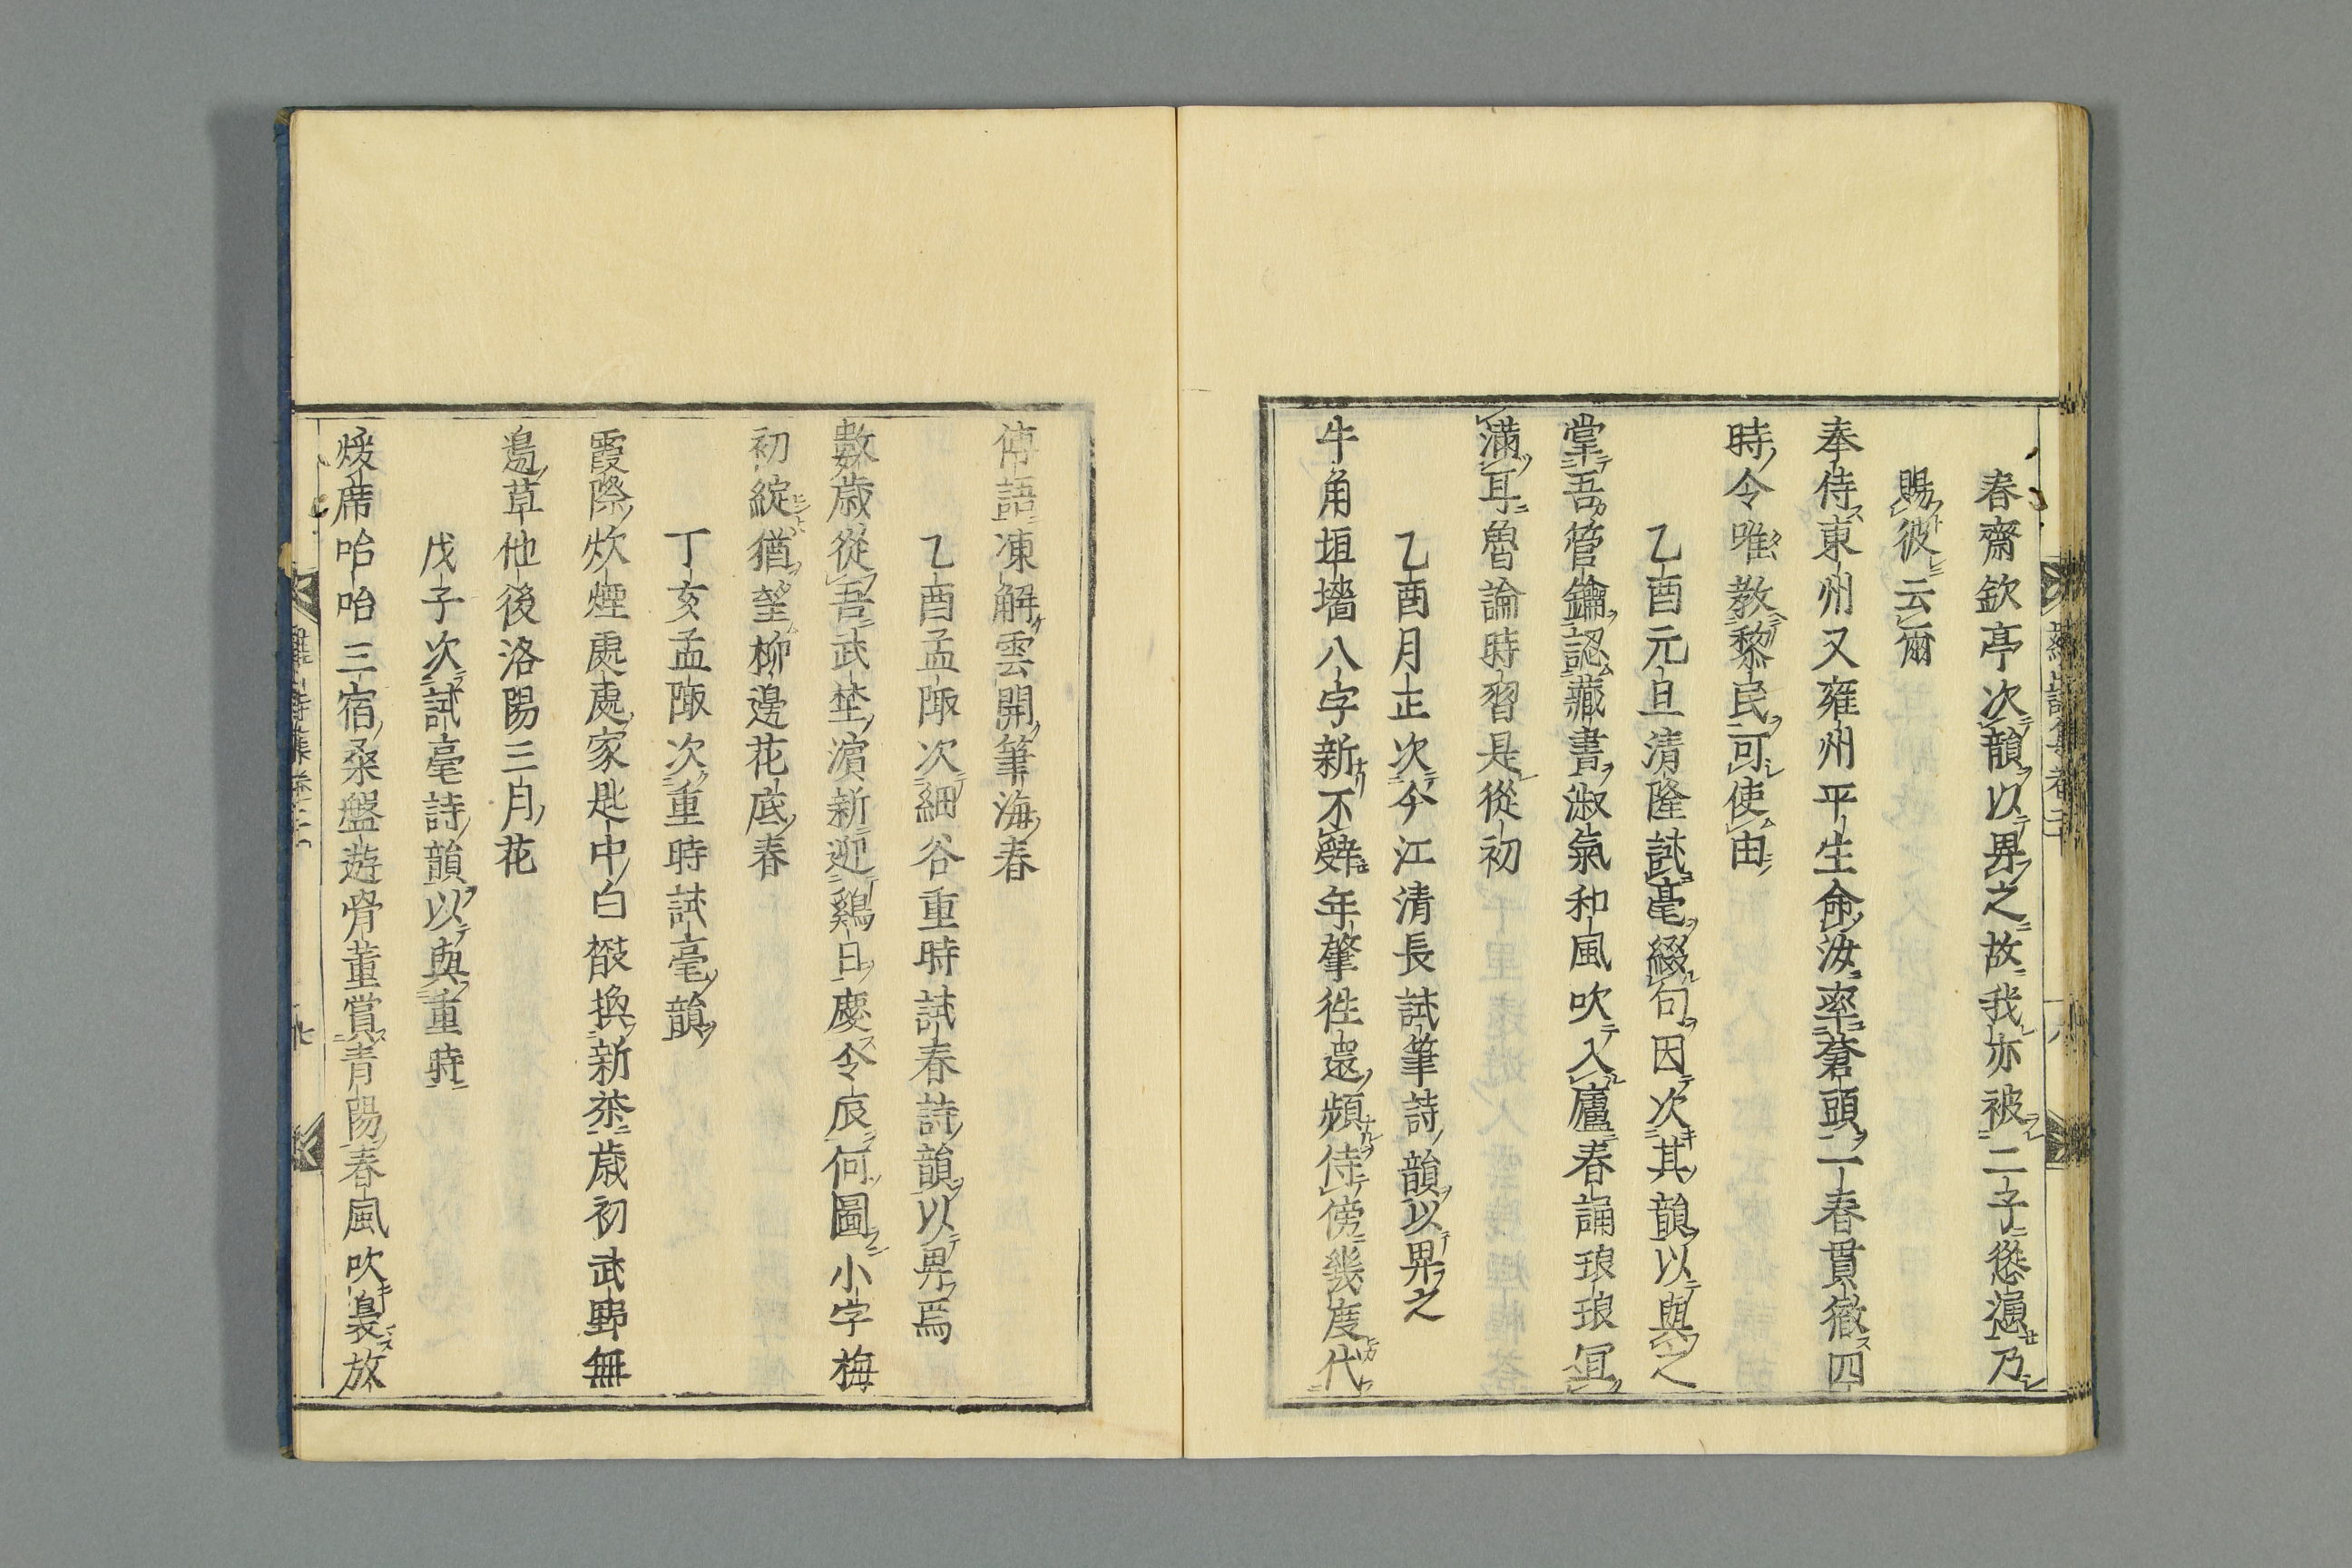 春齋欽亭次韻以畀之故我亦被二子慫慂乃
賜彼云爾
奉侍東州又雍州平生命汝率蒼頭一春貫徹四
時令唯教黎民可使由
乙酉元旦清隆試毫綴句因次其韻以與之
掌吾管鑰認藏書淑氣和風吹入廬春誦琅琅冝
滿耳魯論時習是從初
乙酉月正次今江清長試筆詩韻以畀之
牛角垣墻八字新不辭年肇徃還頻侍傍幾度代
傳語凍解雲開筆海春
乙酉孟陬次細谷重時試春詩韻以畀焉
數歳從吾武埜濵新迎鷄日慶令辰何圖小字梅
初綻猶望柳邊花底春
丁亥孟陬次重時試毫韻
霞際炊煙處處家匙中白㪚換新茶歳初武野無
邉草他後洛陽三月花
戊子次試毫詩韻以與重時
煖席咍咍三宿桑盤遊骨董賞青陽春風吹裊放